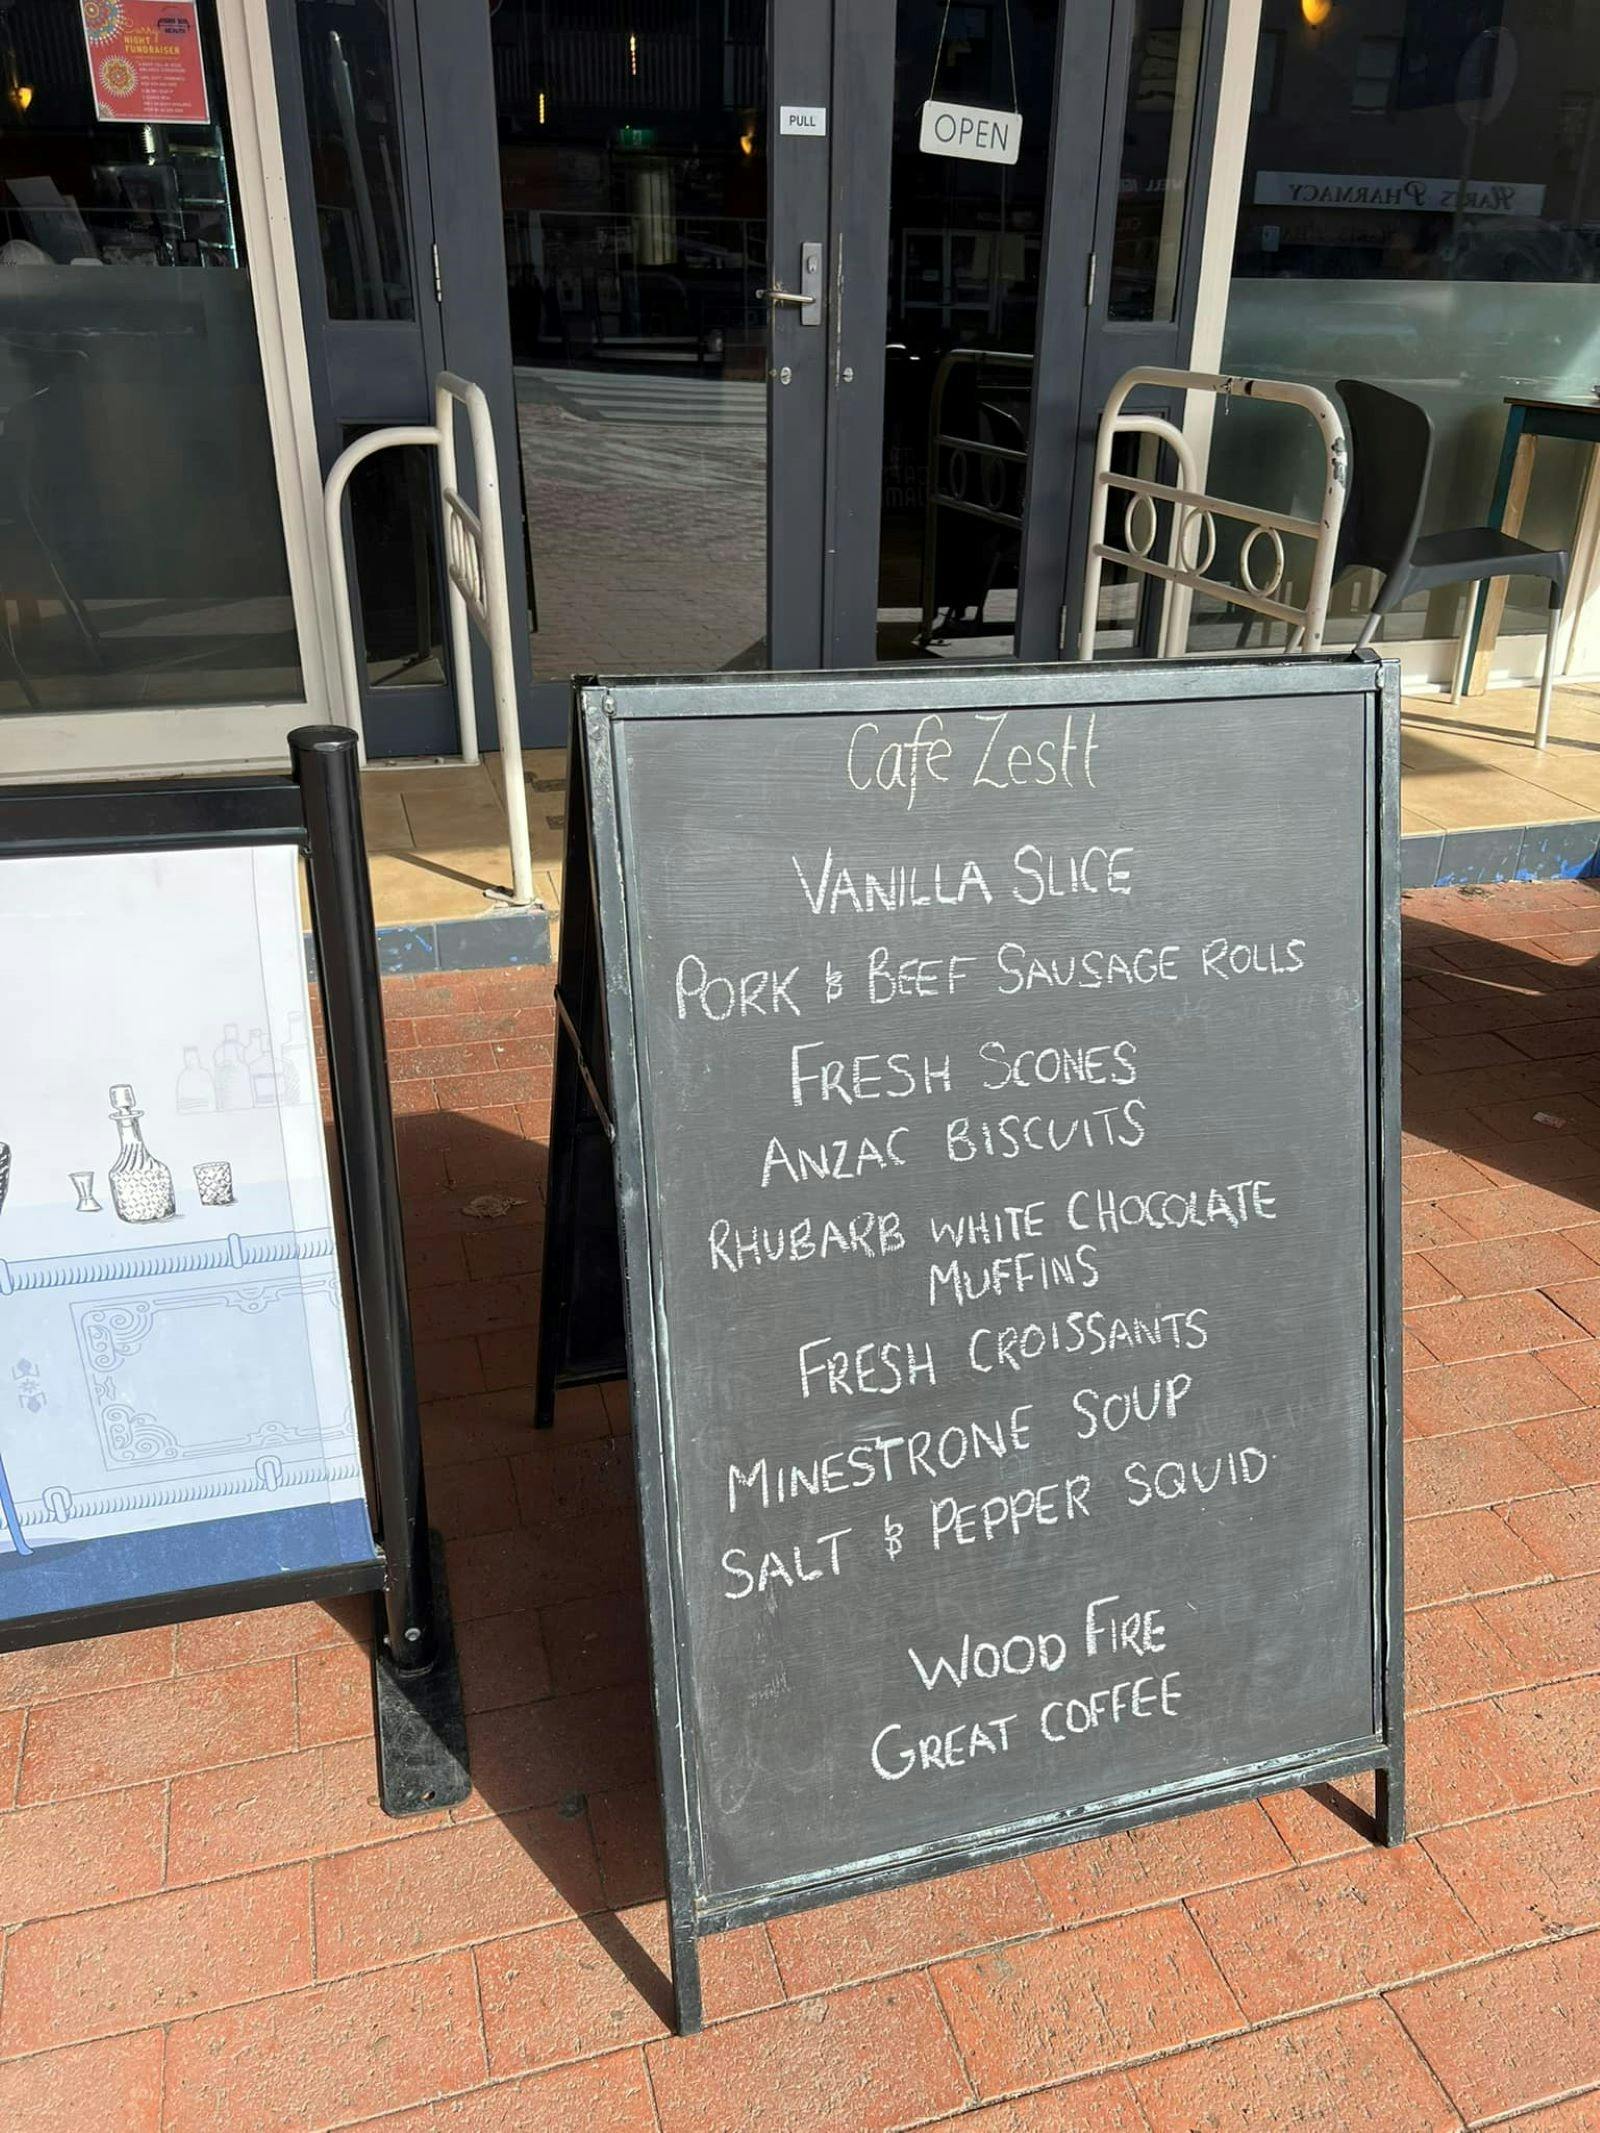 Curry
NIGHT
FUNDRAISER
PULL
OPEN
HART'S PHARMACY
Cafe Zestt
VANILLA SLICE
PORK & BEEF SAUSAGE ROLLS
FRESH SCONES
ANZAC BISCUITS
RHUBARB WHITE CHOCOLATE
MUFFINS
FRESH CROISSANTS
MINESTRONE SOUP
SALT & PEPPER SQUID.
WOOD FIRE
GREAT COFFEE